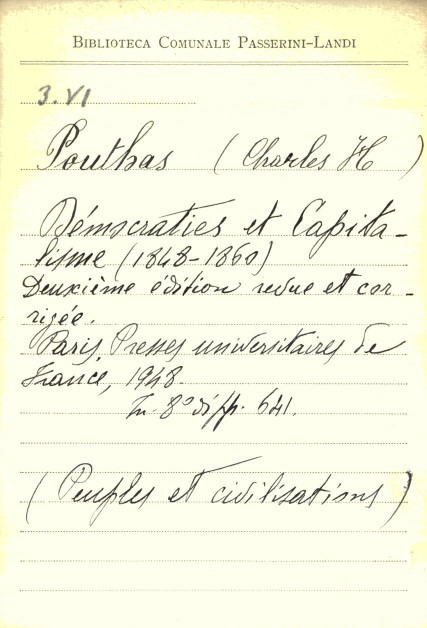 BIBLIOTECA COMUNALE PASSERINI-LANDI
3.VI
Pouthas (Charles H)
Démocraties et Capita-
lisme (1848-1860)
Deuxième édition revue et cor-
rigée.
Paris, Presses universitaires de
France, 1948.
In 8° di pp. 641.
(Peuples et civilisations)